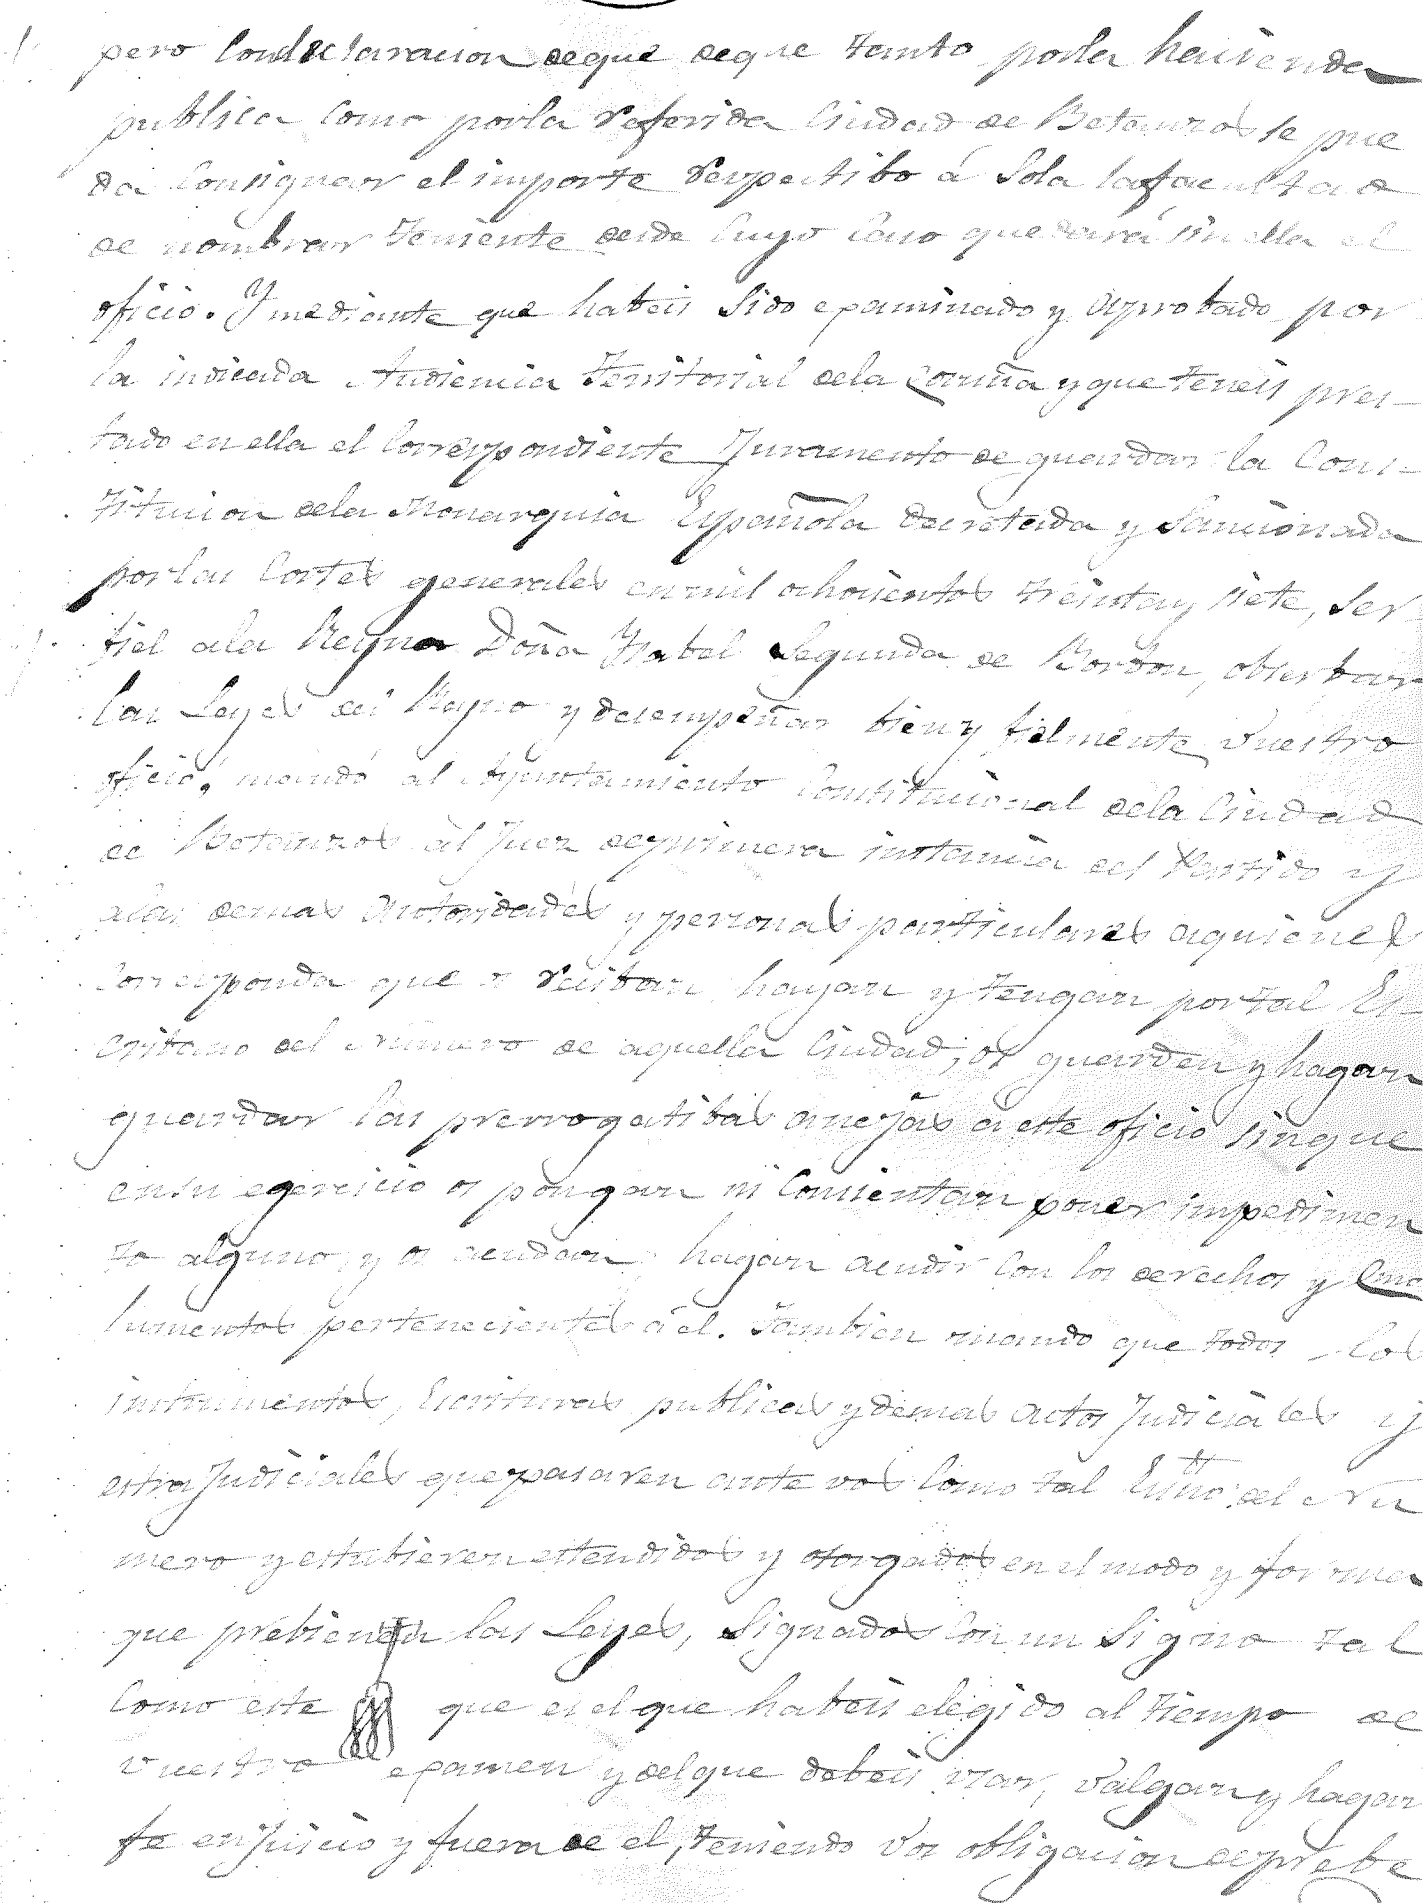 pero Condeclaracion deque deque tanto porla hacienda
publica como porla referida Ciudad de Betanzos se pue
da Consignar el importe respectibo á Sola lafacultad
de nombrar Teniente desde Cuyo Caso quedará sin ella el
oficio. Y mediante que habeis Sido examinado y Aprobado por
la indicada Audiencia Territorial dela Coruña y que teneis pres-
tado en ella el Correspondiente Juramento de guardar la Cons-
titucion dela Monarquia Española decretada y Sancionada
porlas Cortes generales en mil ochocientos treinta y siete, ser
fiel ala Reyna Doña Ysabel Segunda de Borbon, obserbar
las Leyes del Reyno y desempeñar bien y fielmente vuestro
oficio, mando al Ayuntamiento Constitucional dela Ciudad
de Betanzos al Juez deprimera instancia del Partido y
alas demas autoridades y personas particulares aquienes
Corresponda que os reciban hayan y tengan por tal Es-
cribano del Número de aquella Ciudad, os guarden y hagan
guardar las prerrogatibas anejas a este oficio sinque
ensu egercicio os pongan ni Consientan poner impedimen
to alguno, y os acudan, hagan acudir Con los derechos y Emo
lumentos pertenecientes á el. Tambien mando que todos los
instrumentos, Escrituras publicas y demas actos Judiciales y
estraJudiciales quepasaren ante vos Como tal Essno del Nu
mero y estubieren estendidos y otorgados en el modo y forma
que prebienen las Leyes, Signados Con un Signo tal
Como este que es el que habeis elegido al tiempo de
vuestro examen y delque debeis usar, valgan y hagan
fe en Juicio y fuera de el, teniendo vos obligacion deprebe